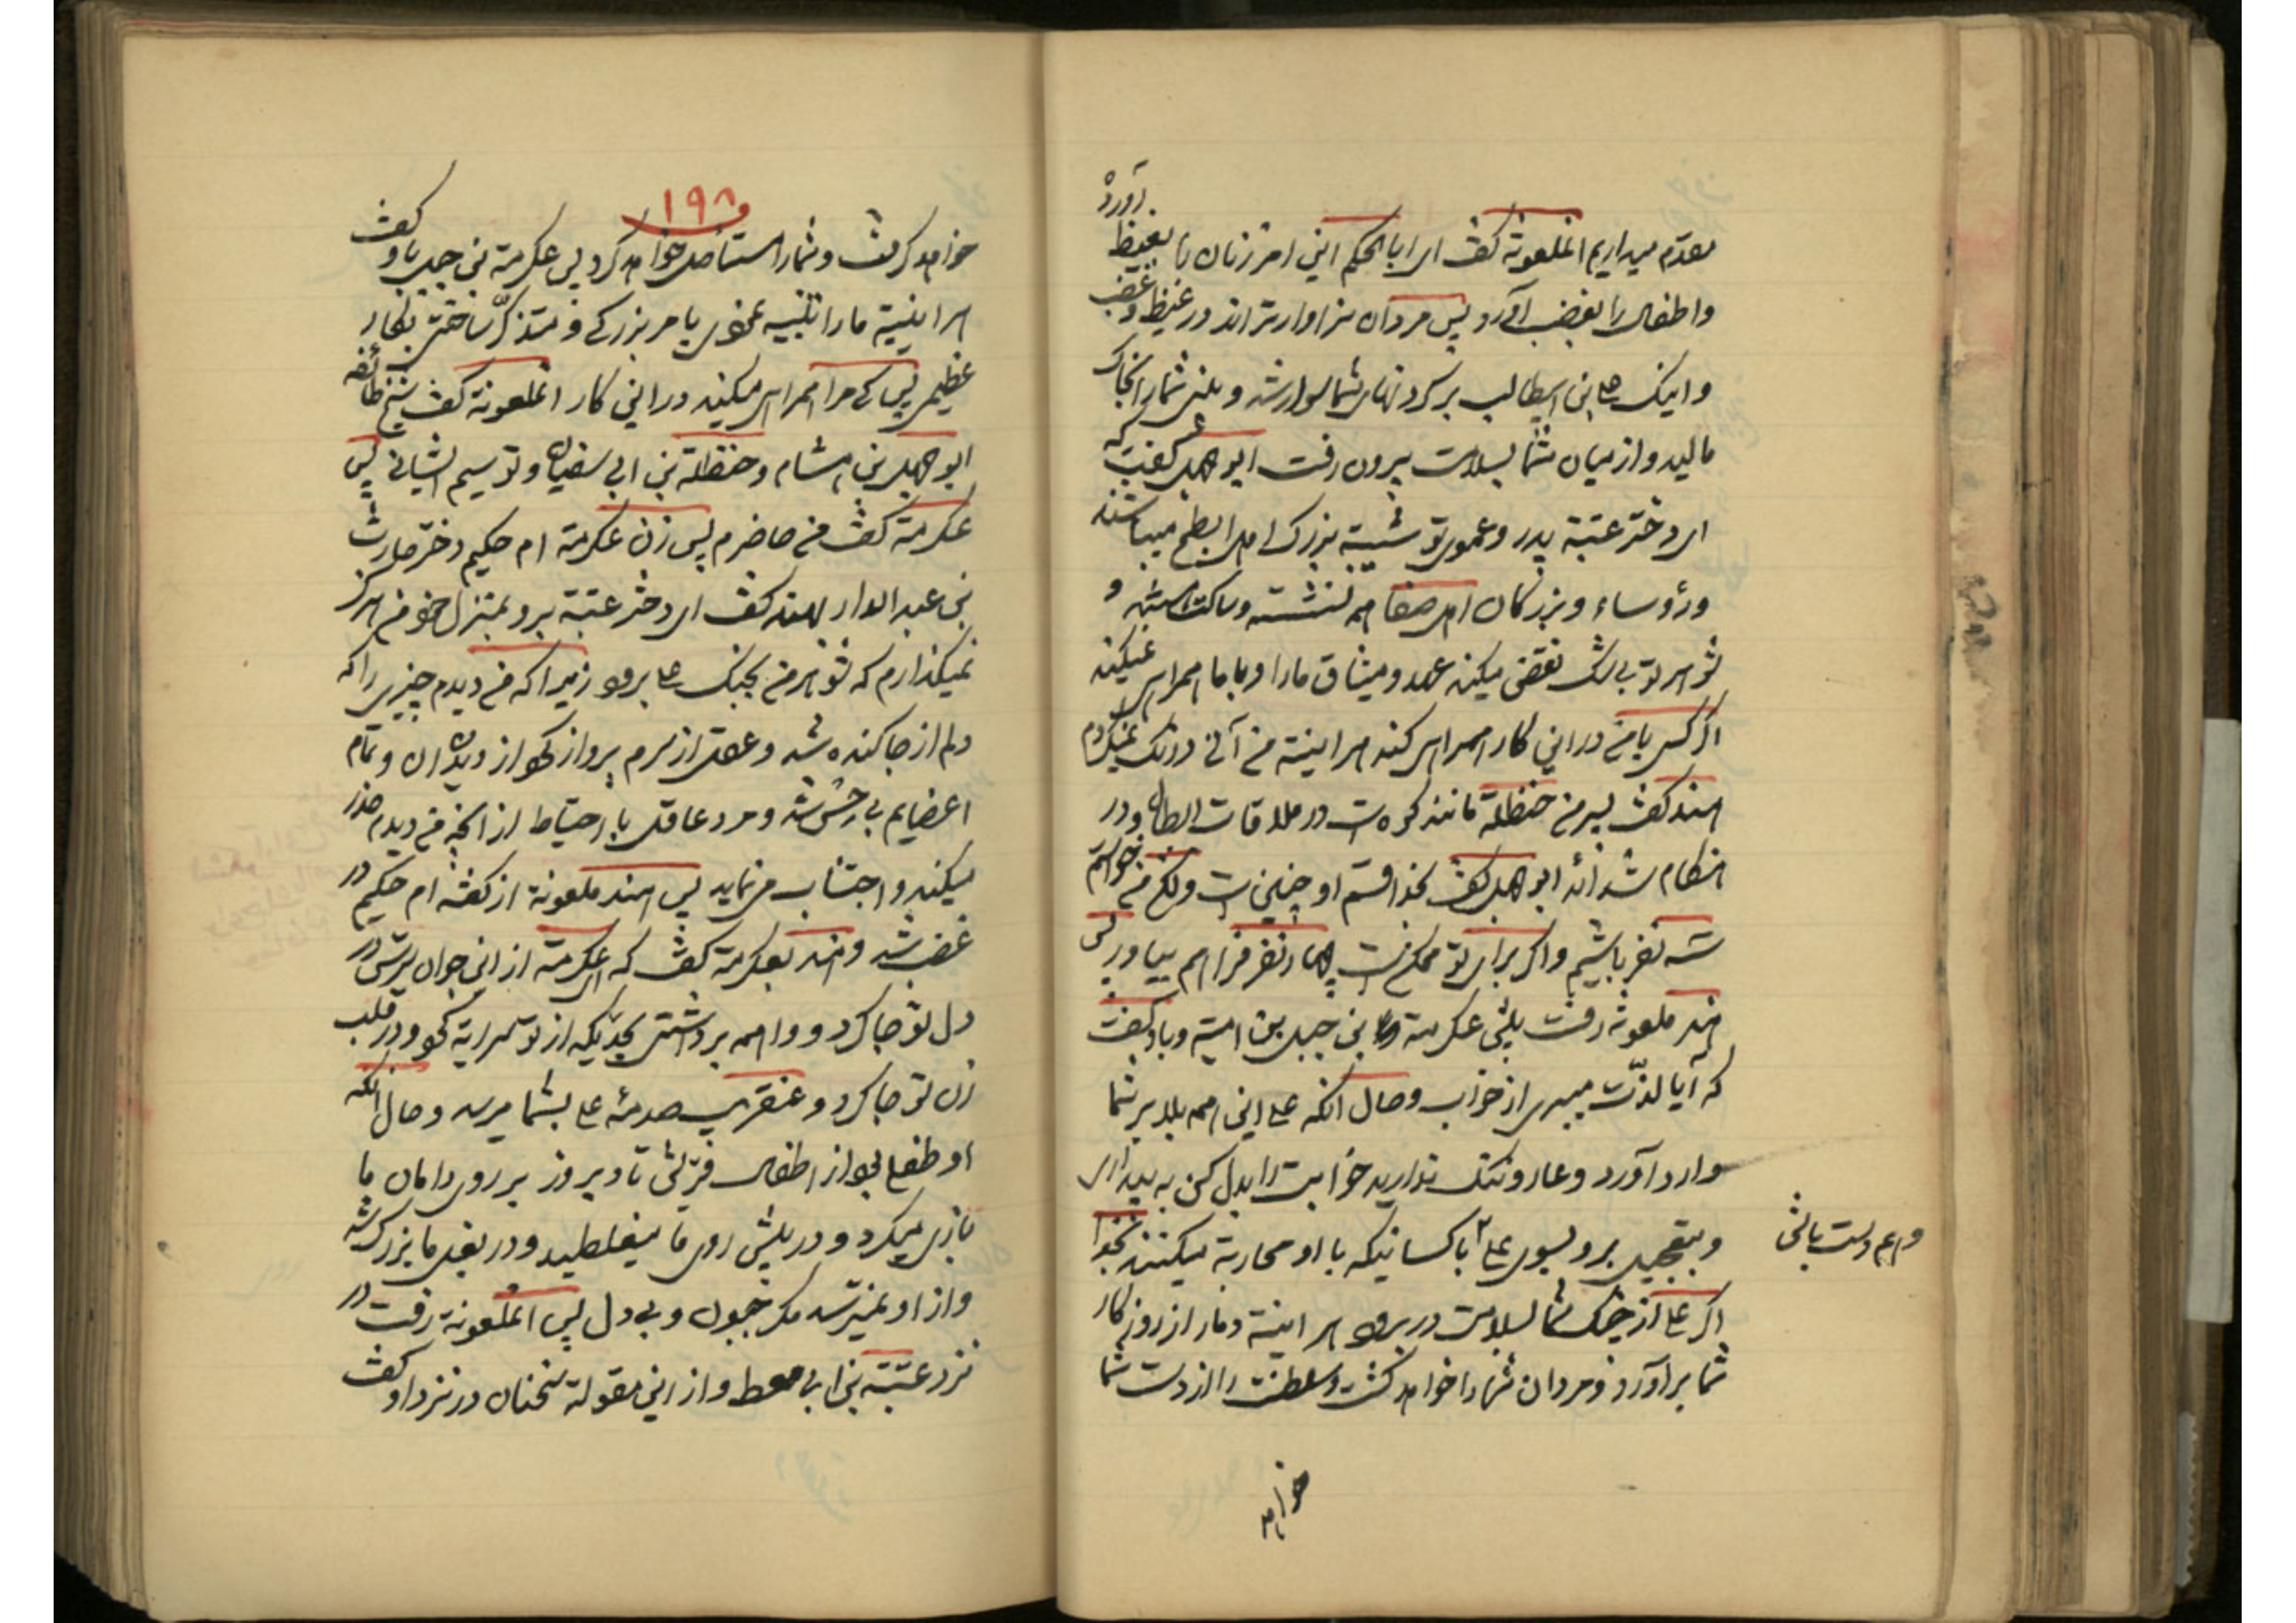 مقدم میداریم انملعونة گفت ای ابا الحکم این امر زنان را بغیظ آورد
و اطفال را بغضب آورد پس مردان سزاوارتراند در غیظ و غضب
و اینک علی بن ابیطالب بر گردنهای شما سوار شد و بینی شما را بخاک
مالید و از میان شما بسلامت بیرون رفت ابوجهل گفت که
ای دختر عتبة پدر و عموی تو شیبة بزرگ اهل ابطح میباشند
و رؤساء و بزرگان اهل صفا همه نشسته و ساکت هستند و
شوهر تو بی شک نقض میکند عهد و میثاق ما را و با ما همراهی نمیکند
اگر کسی با من در این کار همراهی کند هراینه من آنی درنگ نمیکردم
هند گفت پسر من حنظلة مانند کوه است در ملاقات ابطال و در
هنگام شدائد ابوجهل گفت بخدا قسم او چنین است ولکن من خواستم
سه نفر باشیم و اگر برای تو ممکن است چهار نفر فراهم بیاور پس
هند ملعونة رفت پیش عکرمة بن جهل بن امیة و باو گفت
که آیا لذّت میبری از خواب و حال آنکه علی این همه بلا بر شما
وارد آورد و عار و ننگ ندارید خوابت را بدل کن به بیداری
و بتعجیل برو بسوی علی با کسانیکه با او محاربة میکنند بخدا
و هم دست باش
اگر علی از چنگ شما بسلامت در برود هراینة دمار از روزگار
شما برآورد و مردان شما را خواهد کشت و سلطنت را از دست شما
خواهد
۱۹۸
خواهد گرفت و شما را مستأصل خواهد کرد پس عکرمة بن جهل باو گفت
هراینیة ما را تنبیه نمودی بامر بزرگی و متذکّر ساختی بکار
عظیمی پس کی مرا همراهی میکند در این کار انملعونة گفت شیخ طائفه
ابوجهل بن هشام و حنظلة بن ابی سفیان و تو سیم ایشانی پس
عکرمة گفت من حاضرم پس زن عکرمة ام حکیم دختر حارث
بن عبد الدار بهند گفت ای دختر عتبة برو بمنزل خود من هرگز
نمیگذارم که شوهر من بجنگ علی برود زیرا که من دیدم چیزی را که
دلم از جا کنده شد و عقل از سرم پرواز نمود از دیدن آن و تمام
اعضایم بی حس شد و مرد عاقل با احتیاط از آنچه من دیدم حذر
میکند و اجتناب می نماید پس هند ملعونة از گفتهٔ ام حکیم در
غضب شد و هند بعکرمة گفت که ای عکرمة از این جوان ترس در
دل تو جا کرد و واهمه برداشتی بحدّیکه از تو سرایة نمود و در قلب
زن تو جا کرد و عنقریب صدمهٔ علی بشما میرسد و حال آنکه
او طفلی بود از اطفال قریش تا دیروز بر روی دامان ما
بازی میکرد و در پیش روی ما میغلطید و در بغل ما بزرگ شد
و از او نمیترسد مگر جبون و بی دل پس انملعونة رفت در
نزد عتبة بن ابی معط و از این مقولة سخنان در نزد او گفت